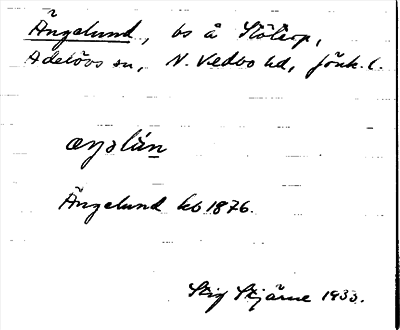 Ängelund, bs å Stötorp,
Adelövs sn, N. Vedbo hd, Jönk. l.
æŋəlùn
Ängelund kb 1876.
Stig Stjärne 1933.